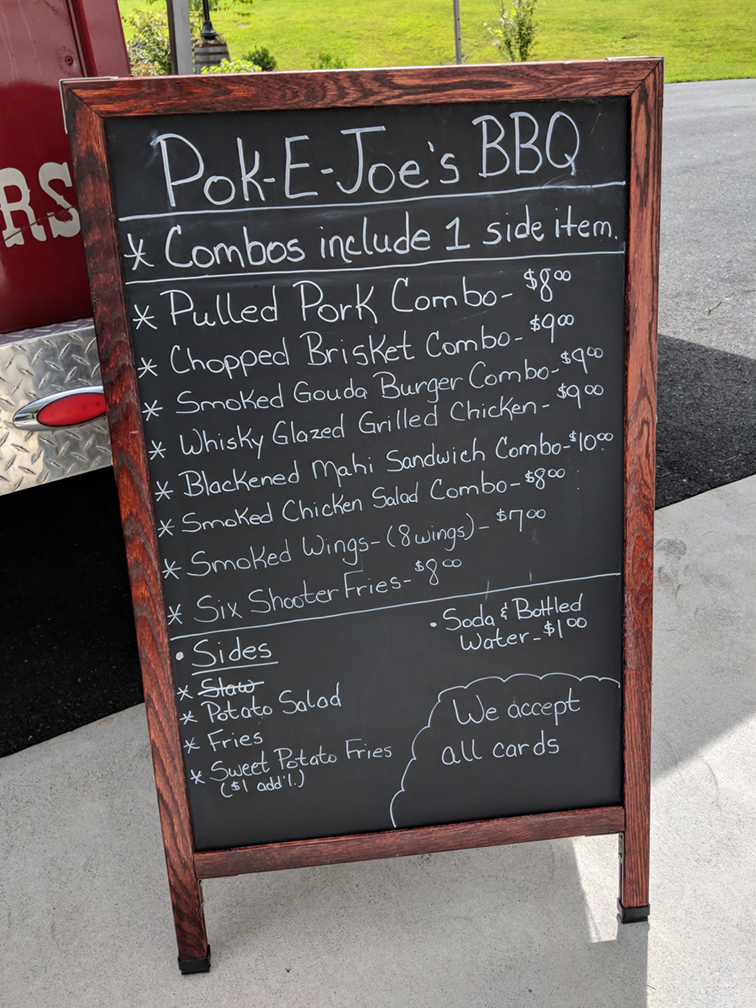 RS
Pok-E-Joe's BBQ
* Combos include 1 side item.
* Pulled Pork Combo- $8.00
* Chopped Brisket Combo- $9.00
* Smoked Gouda Burger Combo- $9.00
* Whisky Glazed Grilled Chicken- $9.00
* Blackened Mahi Sandwich Combo-$10.00
* Smoked Chicken Salad Combo-$8.00
* Smoked Wings-(8 wings)- $7.00
* Six Shooter Fries- $8.00
• Sides
* Slaw
* Potato Salad
* Fries
* Sweet Potato Fries
($1 add'l.)
• Soda & Bottled
Water- $1.00
We accept
all cards